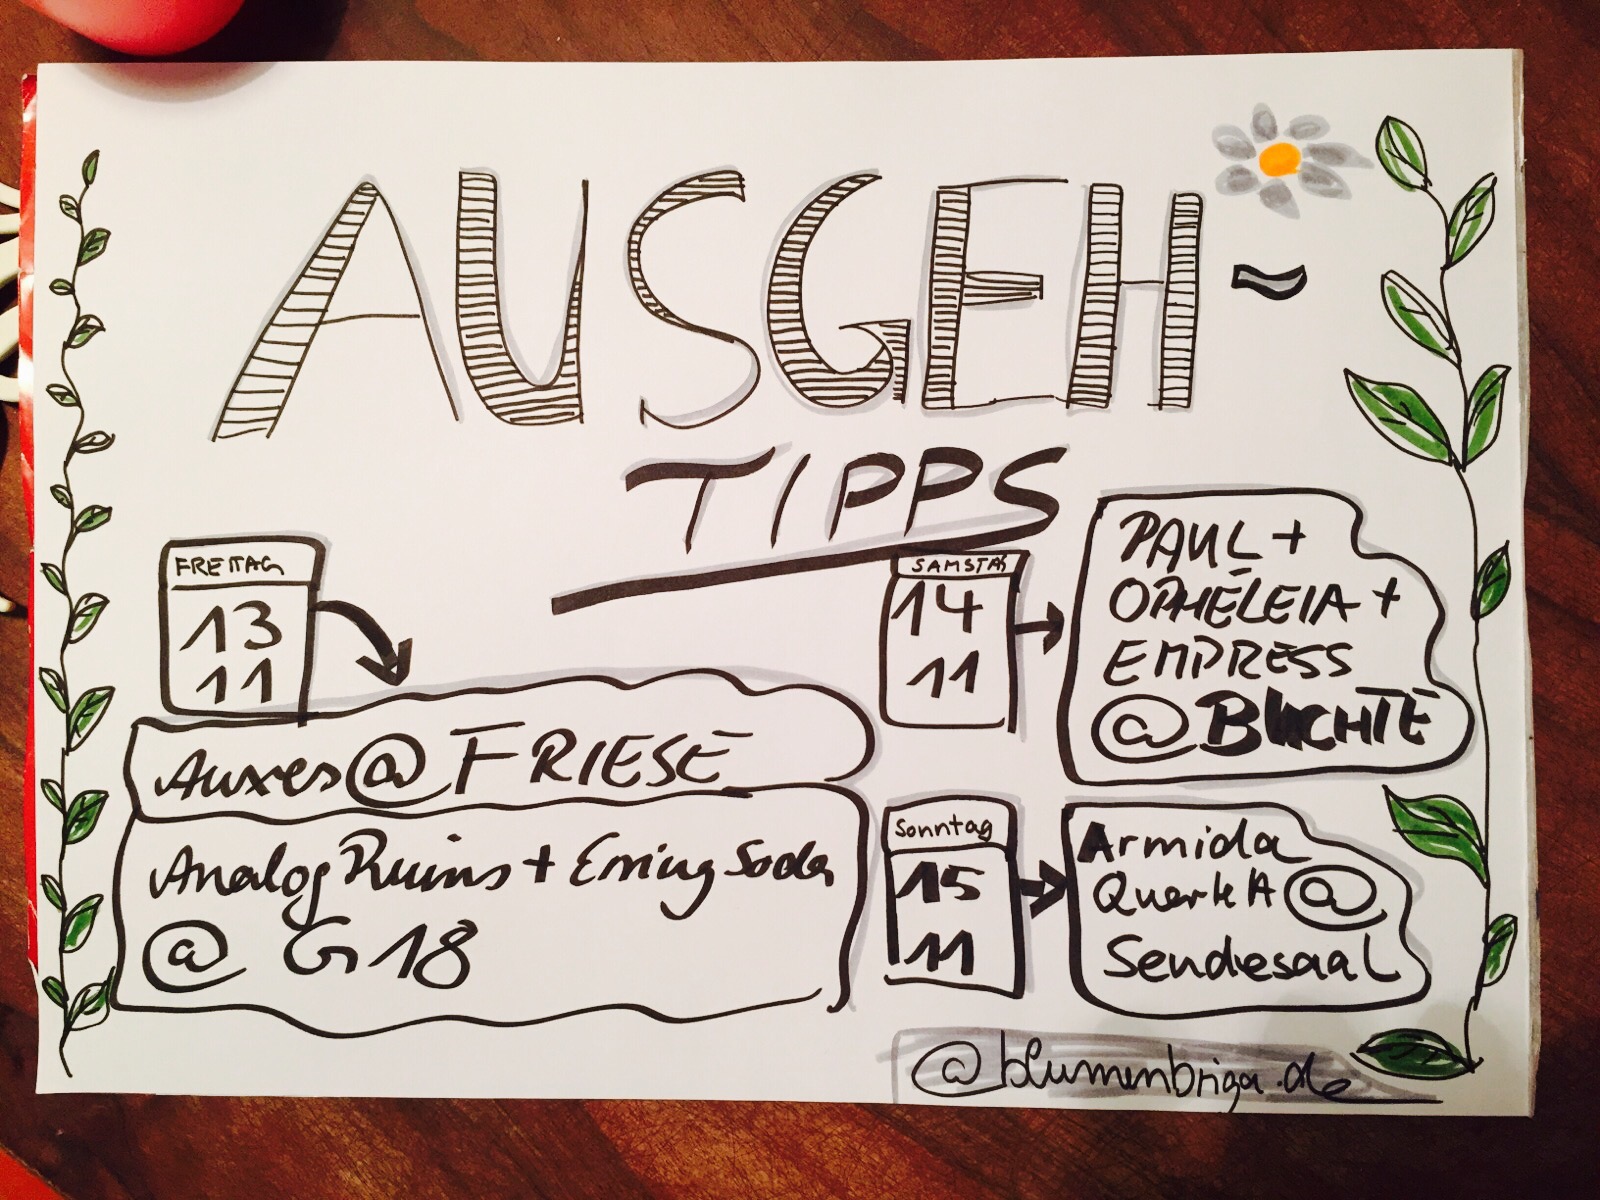 AUSGEH-
TIPPS
FREITAG
13
11
Auxes @ FRIESE
Analog Ruins + Erring Soda
@ G18
SAMSTAG
14
11
PAUL +
OPHELEIA +
EMPRESS
@ BUCHTE
Sonntag
15
11
Armida
Quartett @
Sendesaal
@blumenbriga.de